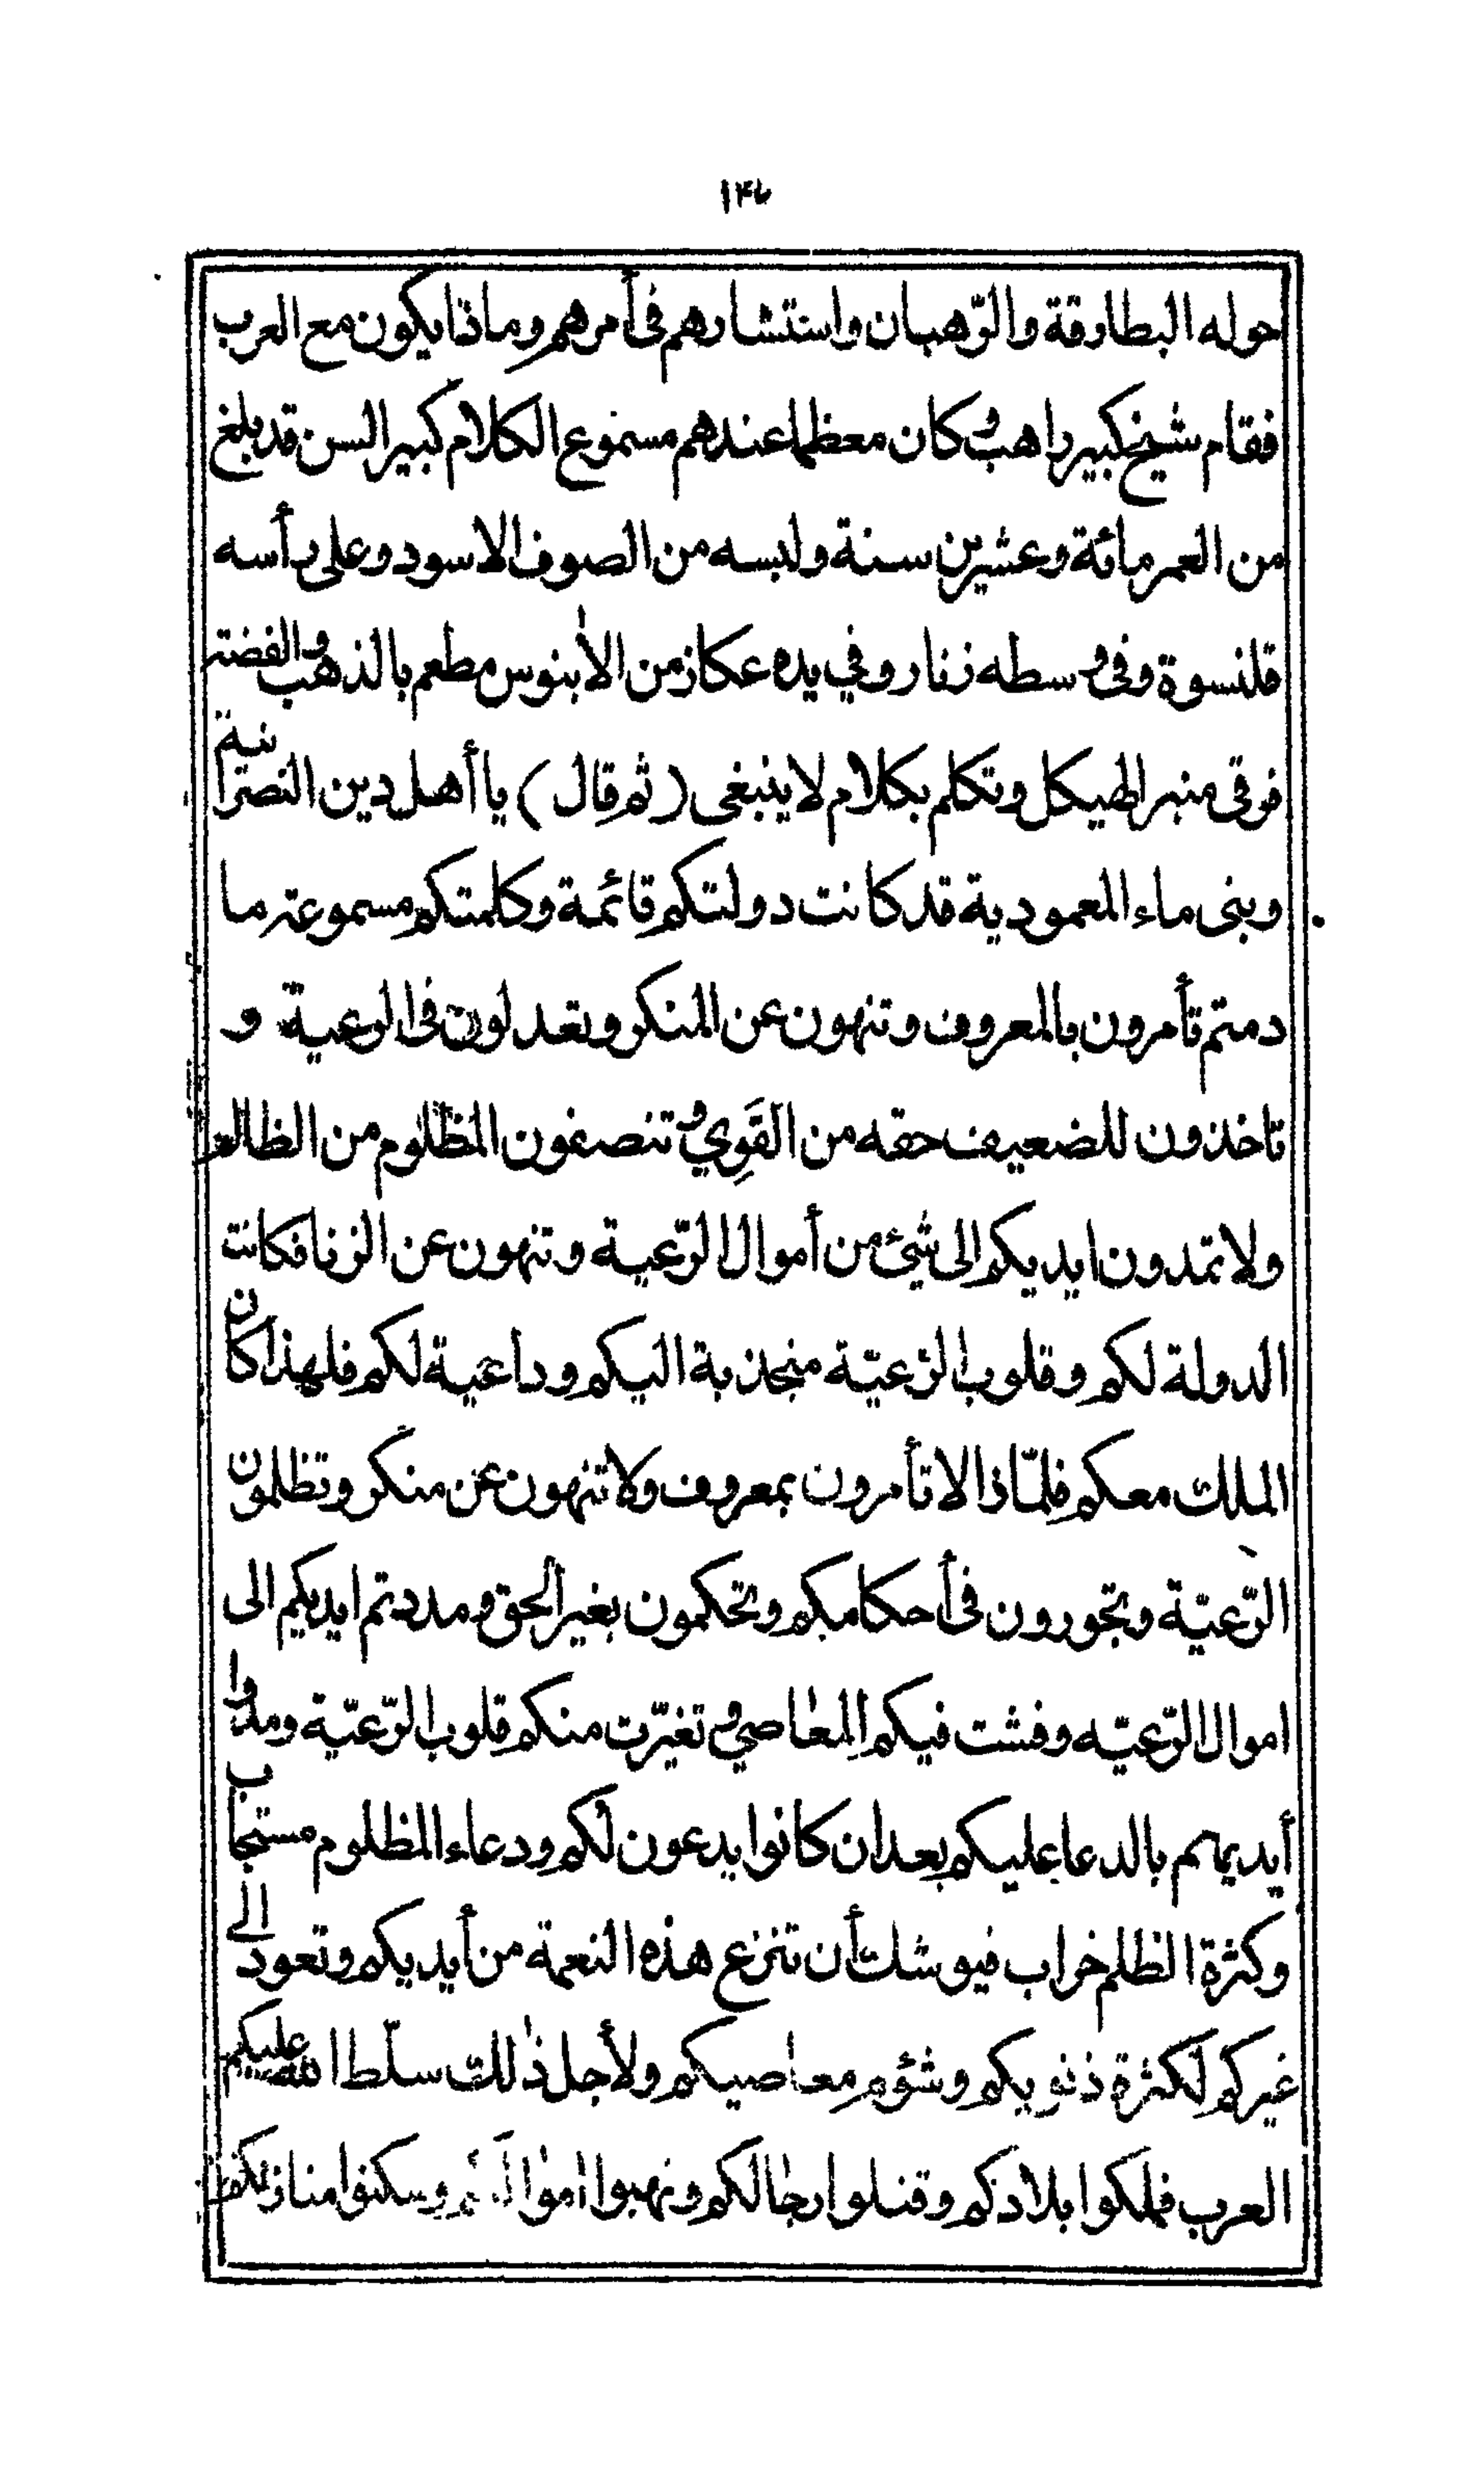 ١٣٦
حوله البطارقة والرّهبان واستشارهم فى أمرهم وماذا يكون مع العرب
فقام شيخ كبير راهب وكان معظما عندهم مسموع الكلام كبير السن قد بلغ
من العمر مائة وعشرين سنة ولبسه من الصوف الاسود وعلى رأسه
قلنسوة وفى وسطه زنار وفي يده عكاز من الأبنوس مطعم بالذهب والفضة
فوقى منبر الهيكل وتكلم بكلام لا ينبغى (ثم قال) يا أهل دين النصرانية
وبنى ماء المعمودية قد كانت دولتكم قائمة وكلمتكم مسموعة ما
دمتم تأمرون بالمعروف وتنهون عن المنكر وتعدلون فى الرعية و
تاخذون للضعيف حقه من القَوِي وتنصفون المظلوم من الظالم
ولا تمدون ايديكم الى شئ من أموال الرّعية وتنهون عن الزنا فكانت
الدولة لكم وقلوب الرّعيّة منجذبة اليكم وداعية لكم فلهذا كان
الملك معكم فلمّا ذا لا تأمرون بمعروف ولا تنهون عن منكر وتظلمون
الرّعيّة وتجورون فى أحكامكم وتحكمون بغير الحق ومددتم ايديكم الى
اموال الرّعيّه وفشت فيكم المعاصي وتغيّرت منكم قلوب الرّعيّة ومدّوا
أيديهم بالدعا عليكم بعد ان كانوا يدعون لكم ودعاء المظلوم مستجاب
وكثرة الظلم خراب فيوشك أن تنزع هذه النعمة من أيديكم وتعود الى
غيركم لكثرة ذنوبكم وشؤم معاصيكم ولأجل ذلك سلّط الله عليكم
العرب فملكوا بلادكم وقتلوا رجالكم ونهبوا اموالكم وسكنوا منازلكم